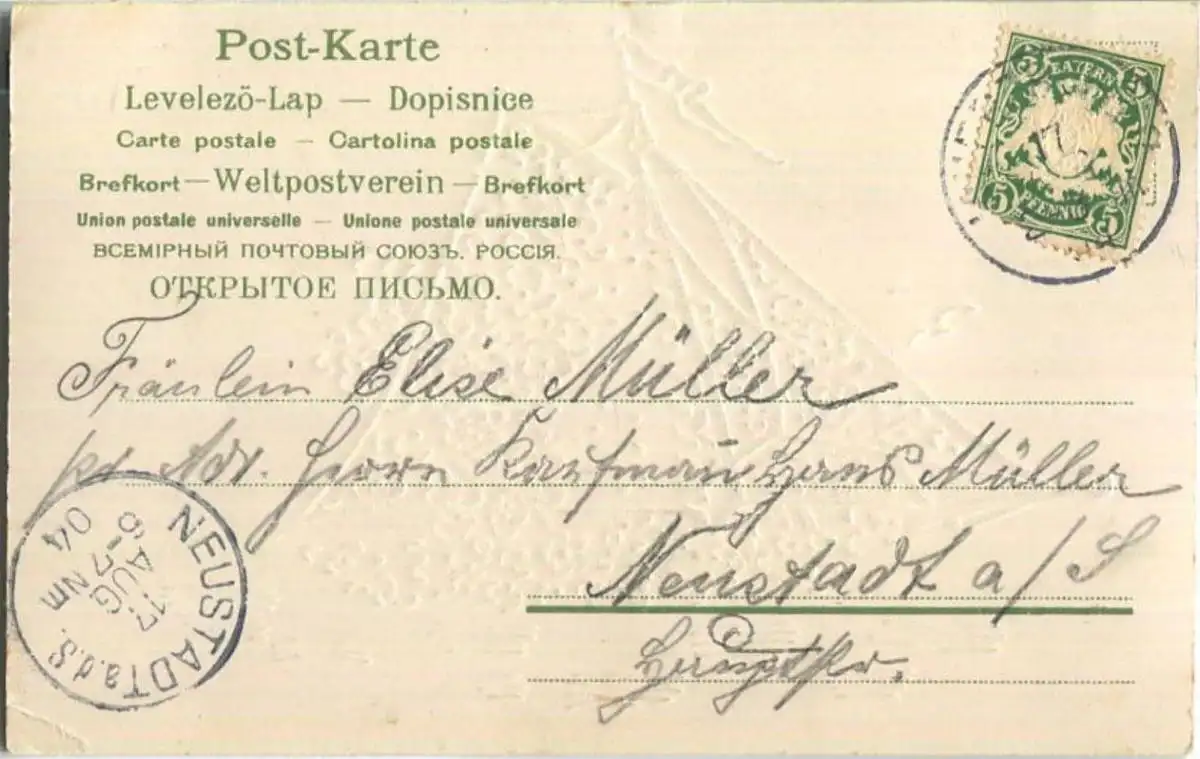 Post-Karte
Levelező-Lap — Dopisnice
Carte postale — Cartolina postale
Brefkort — Weltpostverein — Brefkort
Union postale universelle — Unione postale universale
ВСЕМІРНЫЙ ПОЧТОВЫЙ СОЮЗЪ. РОССІЯ.
ОТКРЫТОЕ ПИСЬМО.
5 BAYERN 5
17.
5 PFENNIG 5
Fräulein Elise Müller
pr Adr. Herrn Kaufmann Hans Müller
Neustadt a/S
Hauptstr.
NEUSTADT a.d.S.
17 AUG
6-7 Nm
04